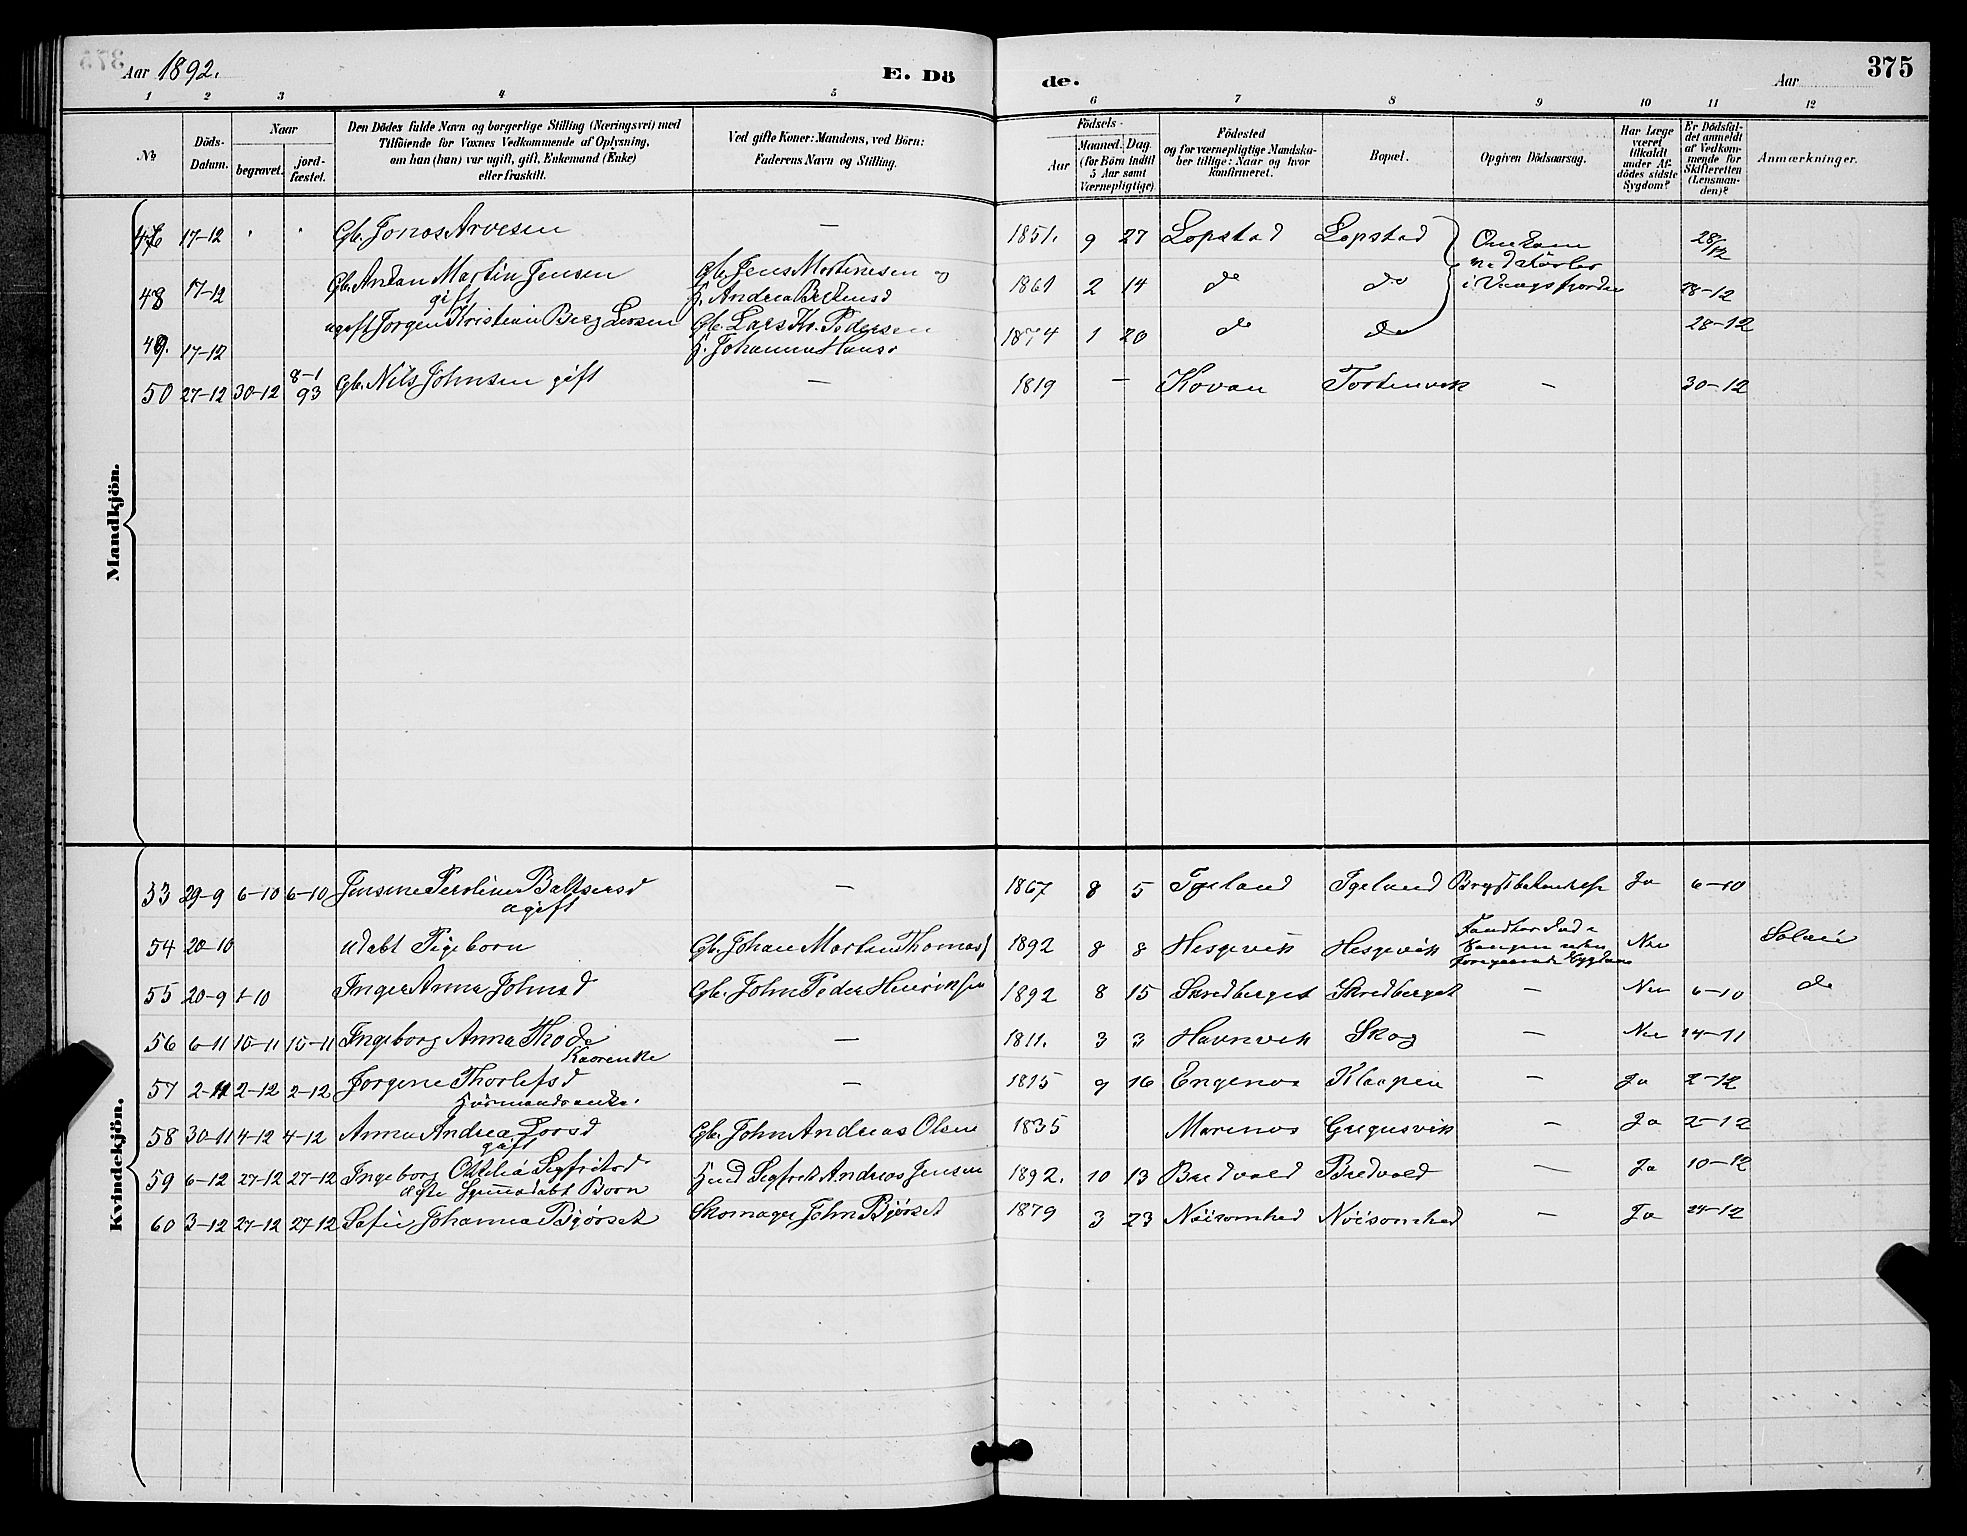 Aar 1892. E. Döde. Aar 375
1 2 3 4 5 6 7 8 9 10 11 12
No
Döds-Datum.
Naar
begravet.
jord-fæstet.
Den Dödes fulde Navn og borgerlige Stilling (Næringsvei) med
Tilföiende for Voxnes Vedkommende af Oplysning,
om han (hun) var ugift, gift, Enkemand (Enke)
eller fraskilt.
Ved gifte Koner: Mandens, ved Börn:
Faderens Navn og Stilling.
Födsels-
Aar
Maaned. Dag.
(for Börn indtil
5 Aar samt
Værnepligtige).
Födested
og for værnepligtige Mandska-
ber tillige: Naar og hvor
konfirmeret.
Bopæl.
Opgiven Dödsaarsag.
Har Læge
været
tilkaldt
under Af-
dödes sidste
Sygdom?
Er Dödsfal-
det anmeldt
af Vedkom-
mende for
Skifteretten
(Lensman-
den)?
Anmærkninger.
Mandkjön.
17-12 Gb. Jonas Arvesen — 1851. 9 27 Lopstad Lopstad Omkom 28/12
48 17-12 Gb. Anton Martin Jensen gb. Jens Mortensen og 1861 2 14 do do i Vaagsfjorden 28-12
gift
ugift Jorgen Kristian Berg Larsen Gb. Lars Kr. Pedersen 28-12
49. 17-12 H. Johanna Hansd 1874 1 20 do do
50 27-12 30-12 8-1 93 Gb. Nils Johnsen gift — 1819 — Kovan — 30-12
Kvindekjön.
53 29-9 6-10 6-10 Jensine Baltsersd — 1867 8 5 Igeland Igeland Ja 6-10
ugift
54 20-10 udøbt Pigeborn Gb. Johan Martin Thomas 1892 8 8 Hesgevik Hesgevik Nei
55 20-9 1-10 Inger Anna Johnsd Gb. John Peder Henriksen 1892 8 15 Skredberget Skredberget — Nei 6-10 do
56 6-11 15-11 15-11 Ingeborg Anna — 1811. 3 3 Havnvik Skog — Nei 14-11
57 2-11 2-12 2-12 Jorgine Thorlefsd — 1815 9 16 Engenes — Ja 2-12
58 30-11 4-12 4-12 Anna Andrea Gb. John Andreas Olsen 1835 Marenos Gregusvik — Ja 2-12
gift
59 6-12 27-12 27-12 Ingeborg Segfritsd Segfrit Andreas Jensen 1892. 10 13 Bredvold Bredvold — Ja 10-12
ægte Born
60 3-12 27-12 27-12 Sofie Johanna Bjørset Skomager John Bjørset 1879 3 23 Nøisomhed Nøisomhed — Ja 24-12